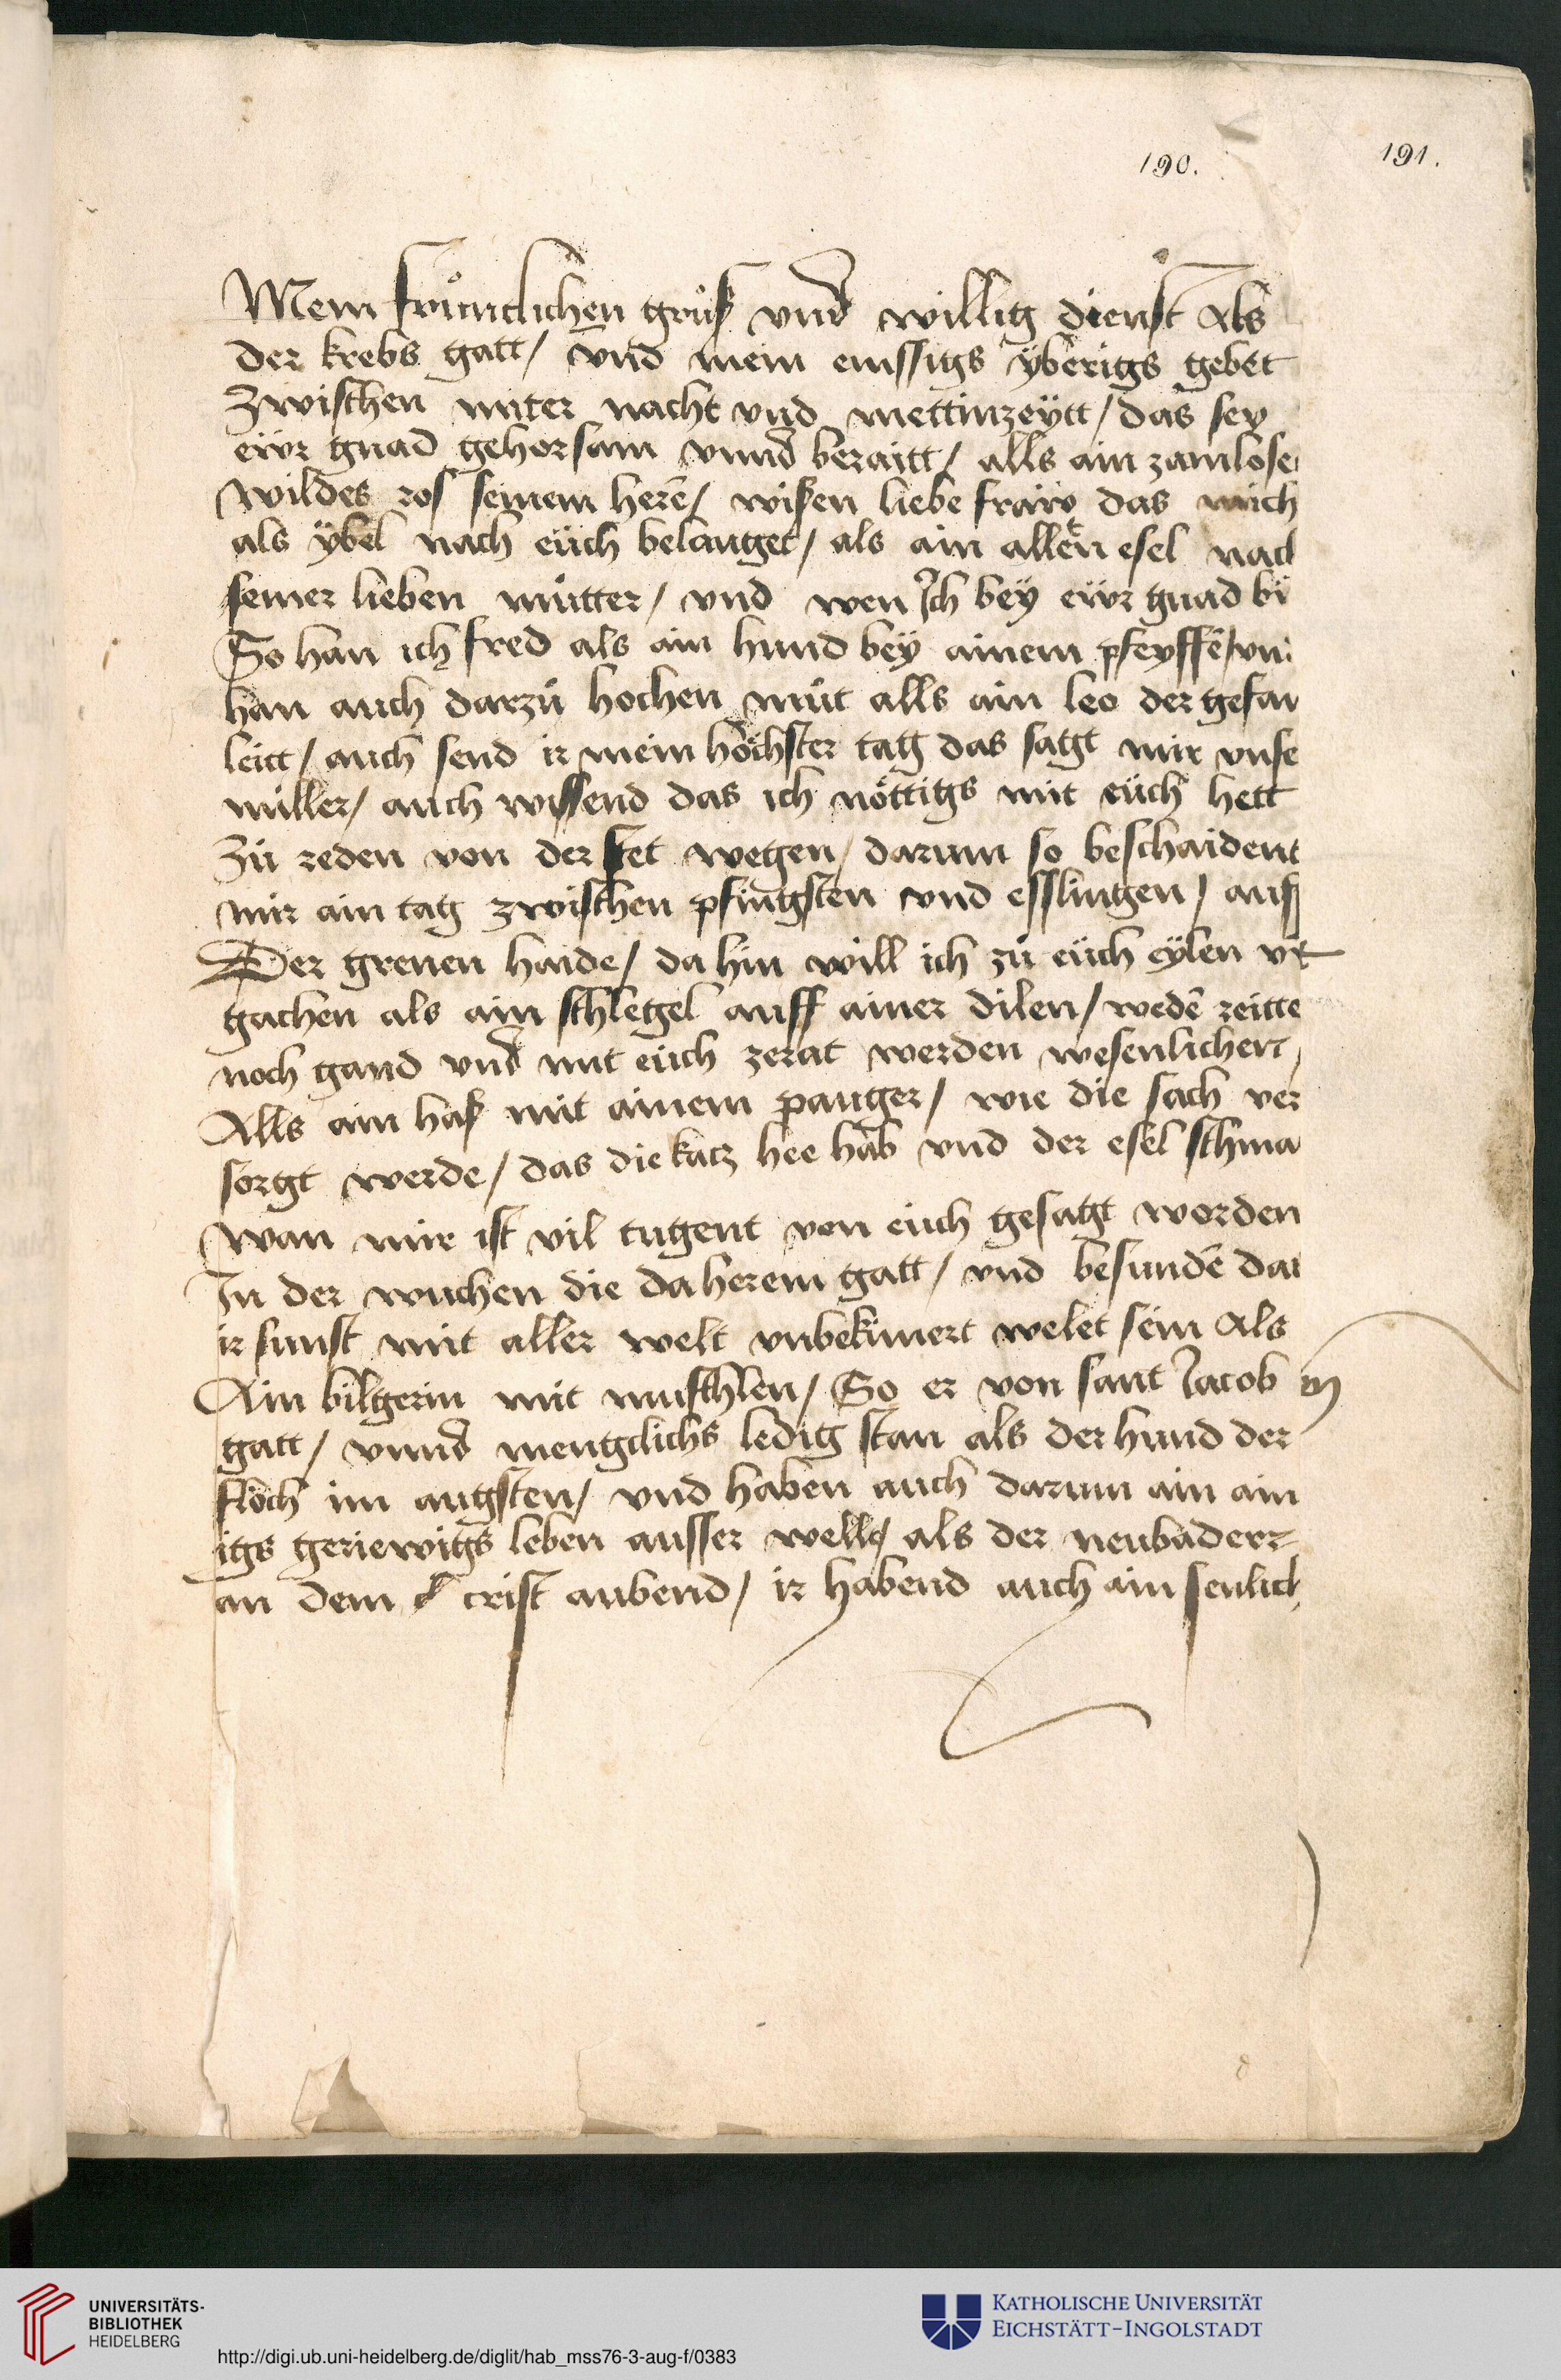 190.
191.
Mein frůntlichen grůß vnd willig dienst Als
der krebs gatt / vnd mein emssigs ÿberigs gebet
Zwischen miter nacht vnd mettinzeÿtt / das sey
eẅr gnad gehorsam vnnd beraitt / alls ain zamlose
wildes ros seinem herē / wißen liebe fraẅ das mich
als ÿbel nach eüch belanget / als ain allēn esel nach
seiner lieben můtter / vnd wen Ich bey eẅr gnad bi
So han ich fred als ain hund bey ainem pfeyffē / vn
han auch darzů hochen můt alls ain leo der gefan
leitt / auch send ir mein höchster tag das sagt mir vnse
miller / auch wissend das ich nöttigs mit eüch hett
Zů reden von der stet wegen / darum so beschaident
mir ain tag zwischen pfingsten vnd esslingen / auß
Der grenen haide / da hin will ich zů eüch eylen vt
gachen als ain schlegel auff ainer dilen / wedē reitte
noch gand vnd mit eüch zerat werden wesenlichen
Alls ain haß mit ainem panger / wie die sach ver
sorgt werde / das die katz hee hab vnd der esel schma
Wan mir ist vil tugent von eüch gesagt worden
In der wuchen die da herein gatt / vnd besundē das
ir sunst mit aller welt vnbekümert welet sein Als
Ain bilgerin mit muschlen / So er von sant Jacob in
gatt / vnnd mengclichs ledig stan als der hund der
flöch im augsten / vnd haben auch darum ain ain
igs geriewigs leben ausser welle als der neubaderr
an dem crist aubend / ir habend auch ain senlich
UNIVERSITÄTS-
BIBLIOTHEK
HEIDELBERG
http://digi.ub.uni-heidelberg.de/diglit/hab_mss76-3-aug-f/0383
KATHOLISCHE UNIVERSITÄT
EICHSTÄTT-INGOLSTADT